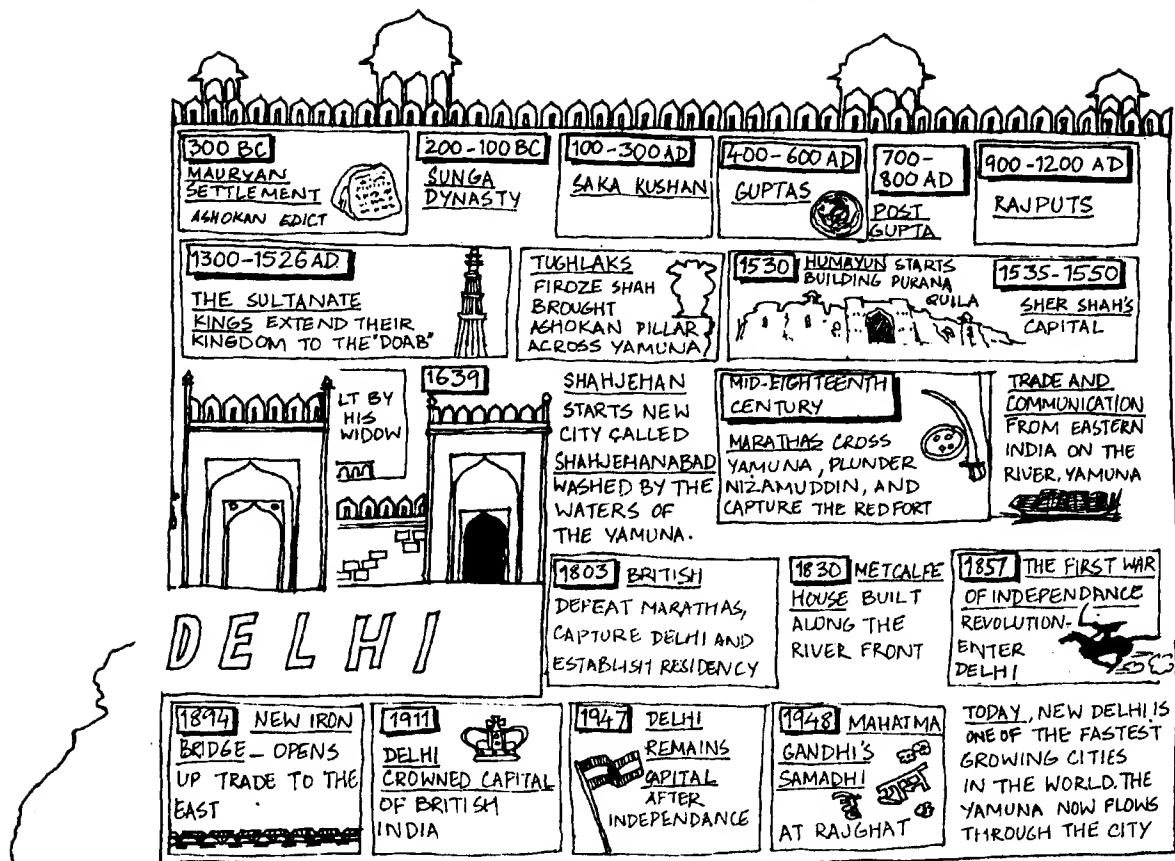 300 BC
MAURYAN
SETTLEMENT
ASHOKAN EDICT
200-100 BC
SUNGA
DYNASTY
100-300 AD
SAKA KUSHAN
400-600 AD
GUPTAS
700-
800 AD
POST
GUPTA
900-1200 AD
RAJPUTS
1300-1526 AD.
THE SULTANATE
KINGS EXTEND THEIR
KINGDOM TO THE "DOAB"
TUGHLAKS
FIROZE SHAH
BROUGHT
ASHOKAN PILLAR
ACROSS YAMUNA
1530 HUMAYUN STARTS
BUILDING PURANA
QUILA
1535-1550
SHER SHAH'S
CAPITAL
LT BY
HIS
WIDOW
1639
SHAHJEHAN
STARTS NEW
CITY CALLED
SHAHJEHANABAD
WASHED BY THE
WATERS OF
THE YAMUNA.
MID-EIGHTEENTH
CENTURY
MARATHAS CROSS
YAMUNA, PLUNDER
NIZAMUDDIN, AND
CAPTURE THE RED FORT
TRADE AND
COMMUNICATION
FROM EASTERN
INDIA ON THE
RIVER, YAMUNA
DELHI
1803 BRITISH
DEFEAT MARATHAS,
CAPTURE DELHI AND
ESTABLISH RESIDENCY
1830 METCALFE
HOUSE BUILT
ALONG THE
RIVER FRONT
1857 THE FIRST WAR
OF INDEPENDANCE
REVOLUTION-
ENTER
DELHI
1894 NEW IRON
BRIDGE - OPENS
UP TRADE TO THE
EAST
1911
DELHI
CROWNED CAPITAL
OF BRITISH
INDIA
1947 DELHI
REMAINS
CAPITAL
AFTER
INDEPENDANCE
1948 MAHATMA
GANDHI'S
SAMADHI
AT RAJGHAT
TODAY, NEW DELHI IS
ONE OF THE FASTEST
GROWING CITIES
IN THE WORLD. THE
YAMUNA NOW FLOWS
THROUGH THE CITY